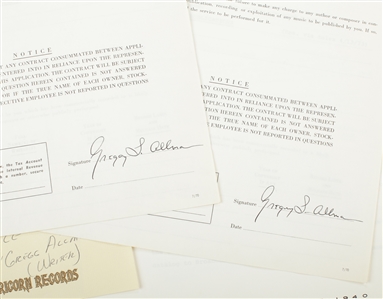 failure to make any change to any author or composer in con-
publication, recording or exploitation of any music to be published by you. If so
the service to be performed for it.
NOTICE
ANY CONTRACT CONSUMMATED BETWEEN APPLI-
ENTERED INTO IN RELIANCE UPON THE REPRESEN-
THIS APPLICATION. THE CONTRACT WILL BE SUBJECT
QUESTION HEREIN CONTAINED IS NOT ANSWERED
OR IF THE TRUE NAME OF EACH OWNER, STOCK-
EXECUTIVE EMPLOYEE IS NOT REPORTED IN QUESTIONS
the Tax Account
Internal Revenue
a number, insert
Signature Gregory L. Allman
Date
NOTICE
ANY CONTRACT CONSUMMATED BETWEEN APPLI-
ENTERED INTO IN RELIANCE UPON THE REPRESEN-
APPLICATION. THE CONTRACT WILL BE SUBJECT
QUESTION HEREIN CONTAINED IS NOT ANSWERED
THE TRUE NAME OF EACH OWNER, STOCK-
EMPLOYEE IS NOT REPORTED IN QUESTIONS
Signature Gregory L. Allman
Date
GREGG ALLM
(WRITER)
RICORN RECORDS
1940